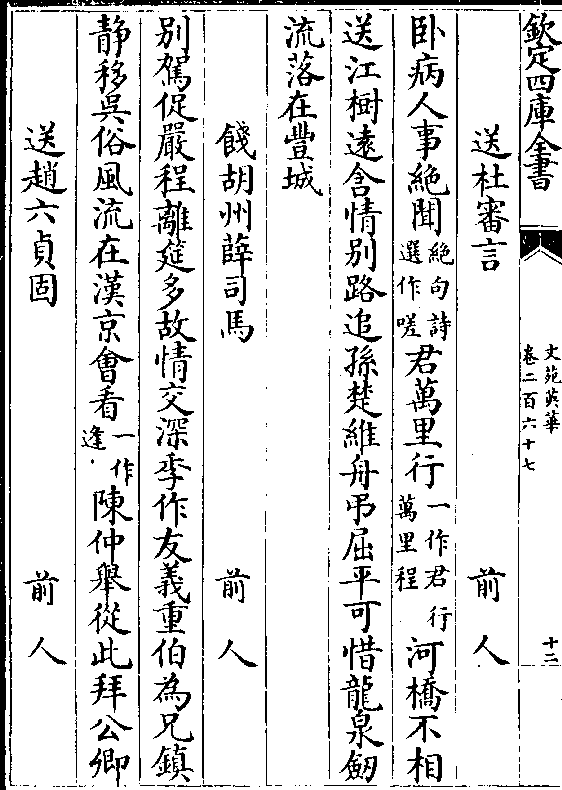 欽定四庫全書
文苑英華
卷二百六十七
十二
送杜審言　前人
卧病人事絶聞絶句詩選作嗟君萬里行一作君行萬里程河橋不相
送江樹遠含情别路追孫楚維舟弔屈平可惜龍泉劔
流落在豐城
餞胡州薛司馬　前人
别駕促嚴程離筵多故情交深季作友義重伯為兄鎮
静移吳俗風流在漢京會看一作逢陳仲舉從此拜公卿
送趙六貞固　前人